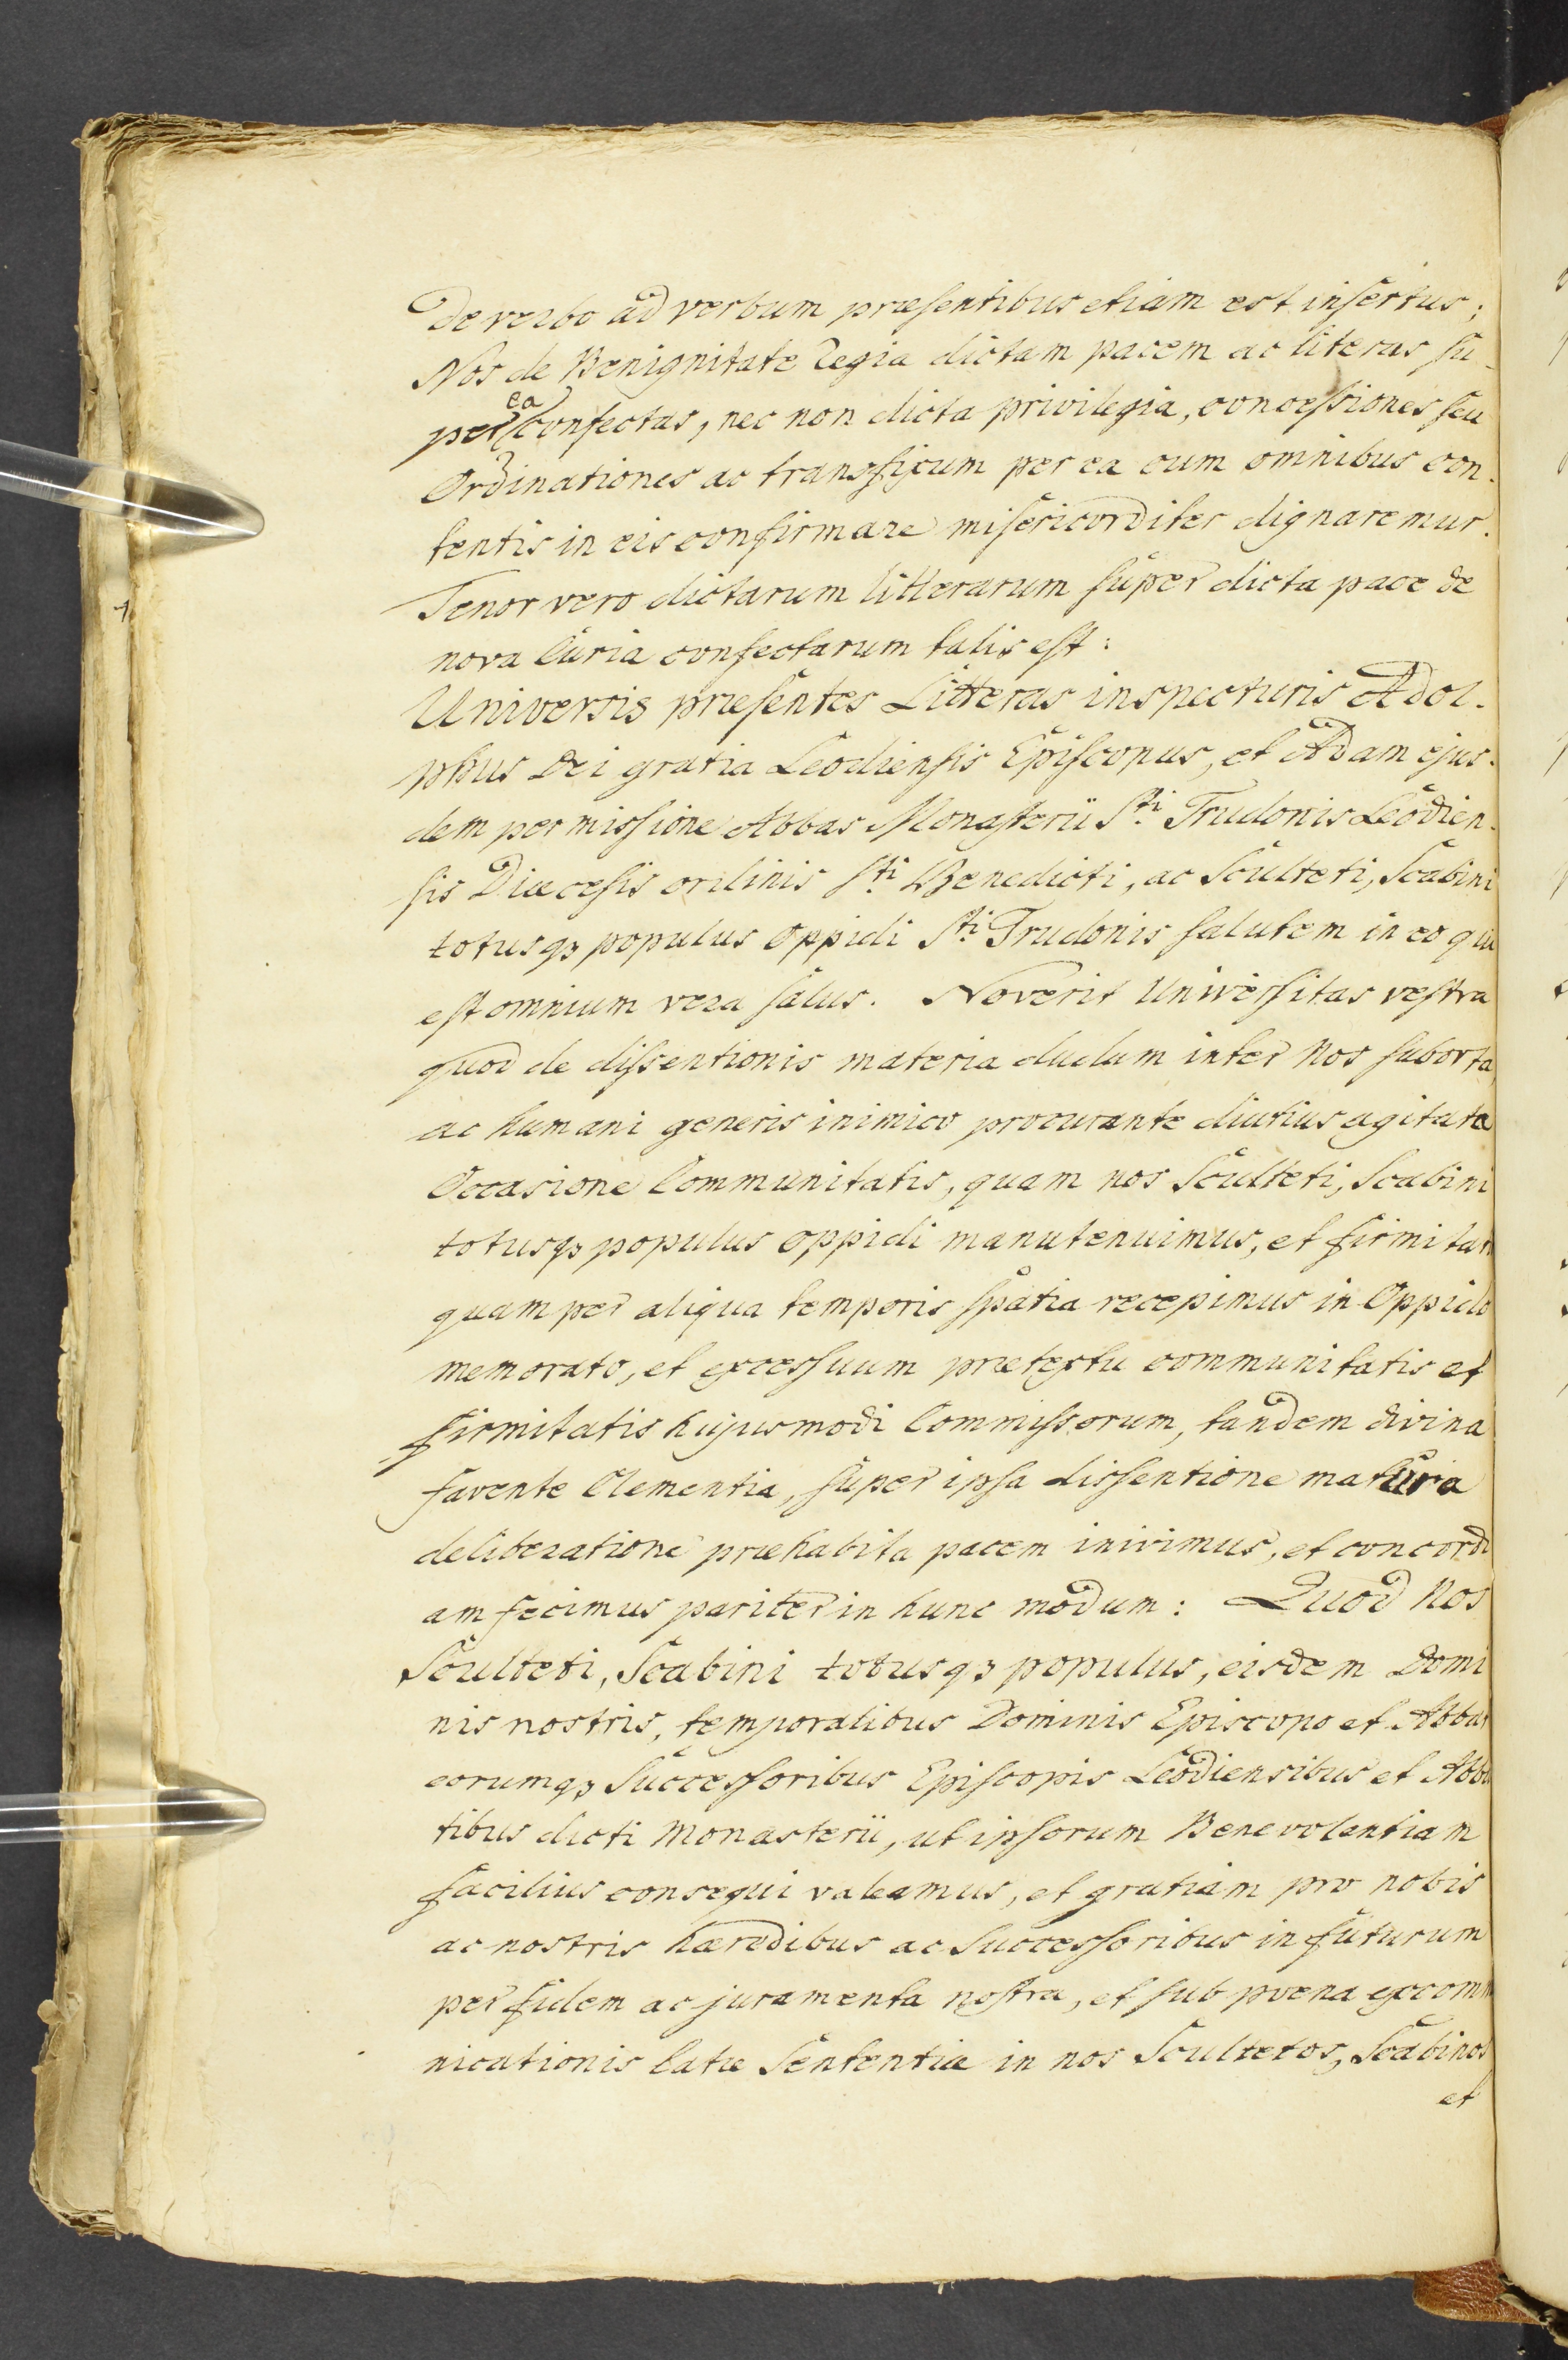 De verbo ad verbum præsentibus etiam est insertus;
Nos de Benignitate Regia dictam pacem ac literas su-
per ea confectas, nec non dicta privilegia, concessiones seu
Ordinationes ac transfixum per ea cum omnibus con-
tentis in eis confirmare misericorditer dignaremur.
Tenor vero dictarum litterarum super dicta pace de
nova Curia confectarum talis est:
Universis præsentes Litteras inspecturis Adol-
phus Dei gratia Leodiensis Episcopus, et Adam ejus-
dem permissione Abbas Monasterii Sti Trudonis Leodien-
sis Diæcesis ordinis Sti Benedicti, ac Sculteti, Scabini
totusqʒ populus Oppidi Sti Trudonis salutem in eo qui
est omnium vera salus. Noverit Universitas vestra
quod de dissentionis materia dudum inter Nos suborta,
ac humani generis inimico procurante diutius agitata
Occasione Communitatis, quam nos Sculteti, Scabini
totusqʒ populus oppidi manutenuimus, et firmitat
quam per aliqua temporis spatia recepimus in Oppido
memorato, et excessuum prætextu communitatis et
firmitatis hujusmodi Commissorum, tandem divina
favente Clementia, super ipsa dissentione matura
deliberatione præhabita pacem inivimus, et concordi
am fecimus pariter in hunc modum: Quod Nos
Sculteti, Scabini totusqʒ populus, eisdem Domi
nis nostris, temporalibus Dominis Episcopo et Abbat
eorumqʒ Successoribus Episcopis Leodiensibus et Abba
tibus dicti Monasterii, ut ipsorum Benevolentiam
facilius consequi valeamus, et gratiam pro nobis
ac nostris hæredibus ac Successoribus in futurum
per fidem ac juramenta nostra, et sub pœna excomm
nicationis latæ Sententiæ in nos Scultetos, Scabinos
et